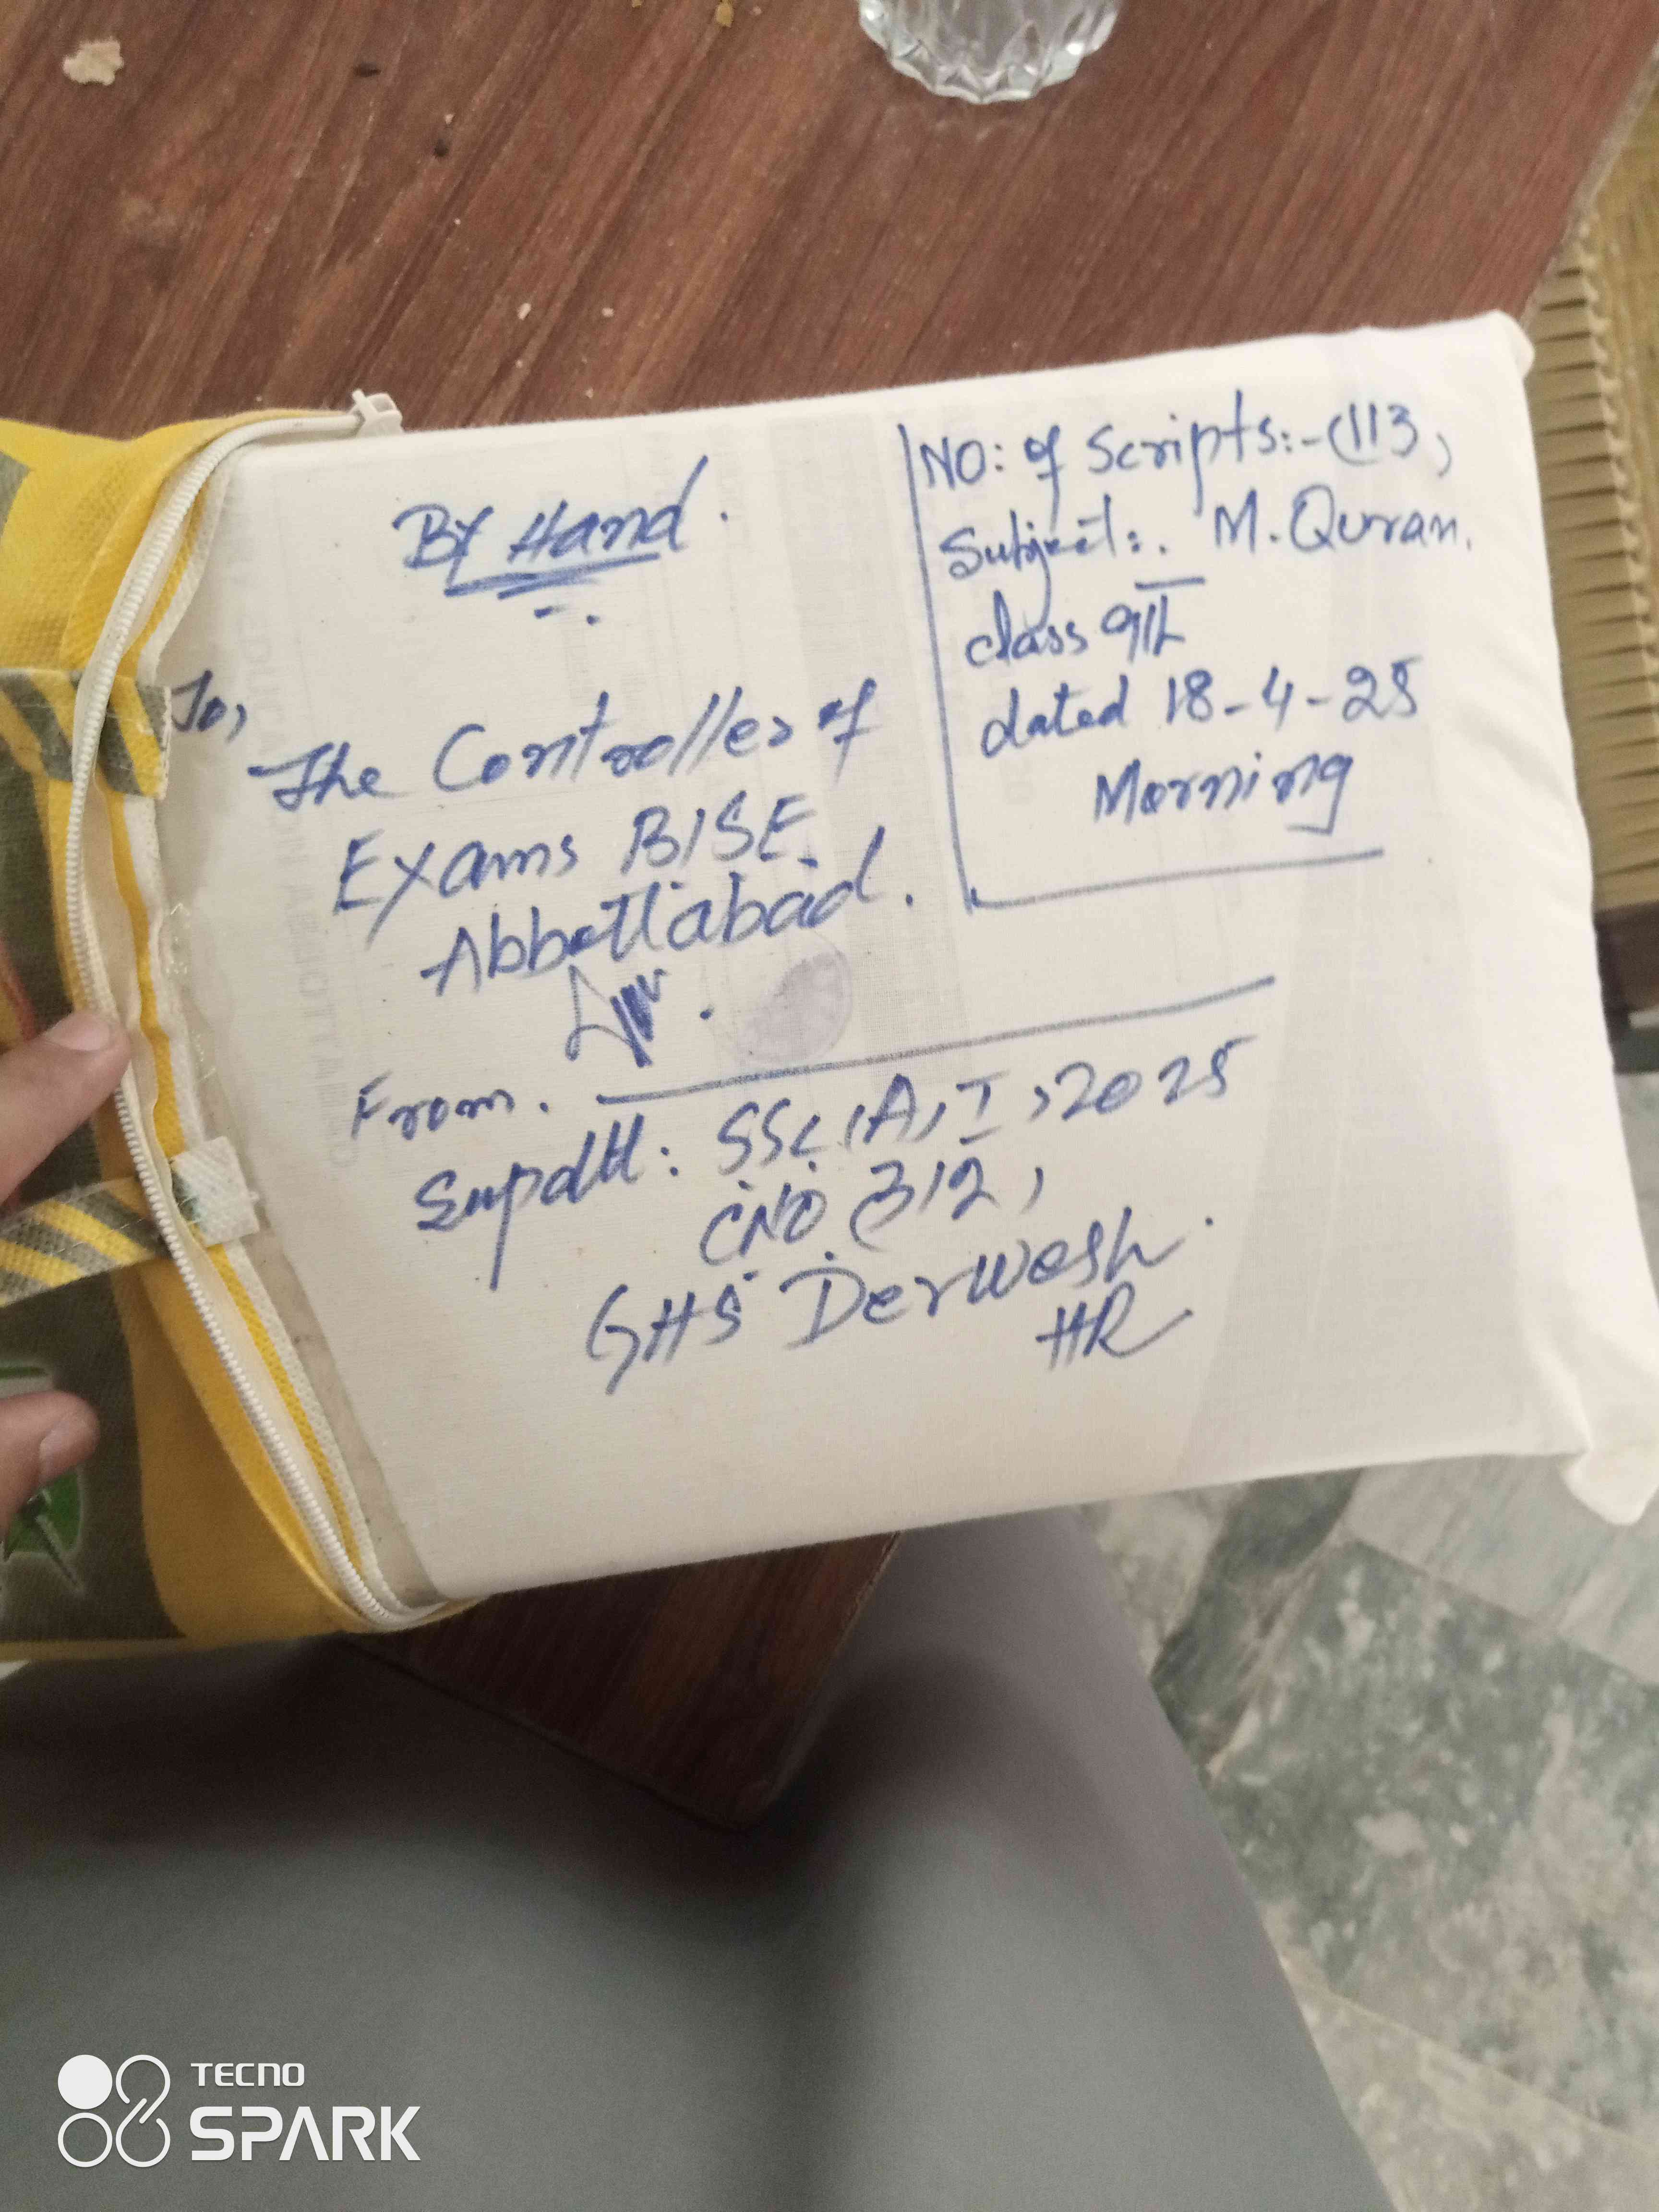 By Hand.
NO: of Scripts:-(113)
Subject:. M. Quran.
class 9th
dated 18-4-25
Morning
To,
The Controller of
Exams BISE
Abbottabad.
From.
Supdtt: SSC, A, I, 2025
CNO 312,
GHS Derwesh.
HR
TECNO
SPARK